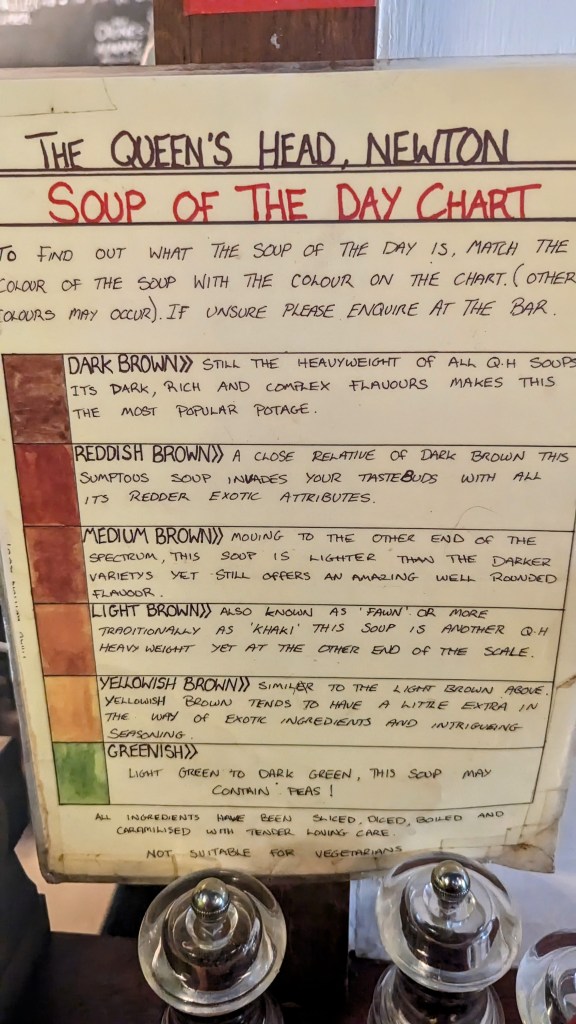 THE QUEEN'S HEAD, NEWTON
SOUP OF THE DAY CHART
TO FIND OUT WHAT THE SOUP OF THE DAY IS, MATCH THE
COLOUR OF THE SOUP WITH THE COLOUR ON THE CHART. (OTHER
COLOURS MAY OCCUR). IF UNSURE PLEASE ENQUIRE AT THE BAR.
DARK BROWN》 STILL THE HEAVYWEIGHT OF ALL Q.H SOUPS
ITS DARK, RICH AND COMPLEX FLAVOURS MAKES THIS
THE MOST POPULAR POTAGE.
REDDISH BROWN》 A CLOSE RELATIVE OF DARK BROWN THIS
SUMPTOUS SOUP INVADES YOUR TASTEBUDS WITH ALL
ITS REDDER EXOTIC ATTRIBUTES.
MEDIUM BROWN》 MOVING TO THE OTHER END OF THE
SPECTRUM, THIS SOUP IS LIGHTER THAN THE DARKER
VARIETYS YET STILL OFFERS AN AMAZING WELL ROUNDED
FLAVOUR.
LIGHT BROWN》 ALSO KNOWN AS 'FAWN' OR MORE
TRADITIONALLY AS 'KHAKI' THIS SOUP IS ANOTHER Q.H
HEAVYWEIGHT YET AT THE OTHER END OF THE SCALE.
YELLOWISH BROWN》 SIMILAR TO THE LIGHT BROWN ABOVE.
YELLOWISH BROWN TENDS TO HAVE A LITTLE EXTRA IN
THE WAY OF EXOTIC INGREDIENTS AND INTRIGUEING
SEASONING.
GREENISH》
LIGHT GREEN TO DARK GREEN, THIS SOUP MAY
CONTAIN PEAS!
ALL INGREDIENTS HAVE BEEN SLICED, DICED, BOILED AND
CARAMILISED WITH TENDER LOVING CARE.
NOT SUITABLE FOR VEGETARIANS